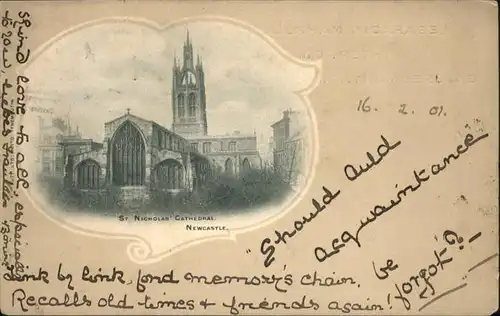 16. 2. 01.
St. Nicholas' Cathedral.
Newcastle.
"Should Auld
acquaintance
be
forgot"?
Link by link, fond memory's chain,
Recalls old times & friends again!
kind love to all, especially
to you,